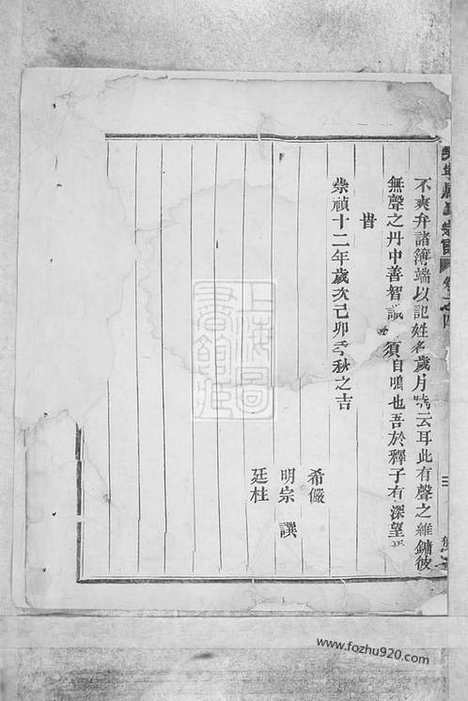 不爽弁諸簿端以記姓名歲月曉云耳此有聲之雖鏞彼
無聲之丹中善智 須自鳴也吾於釋子有深望
旹
崇禎十二年歲次己卯季秋之吉
希儼
明宗 譔
廷柱
上海圖書館
www.fozhu920.com